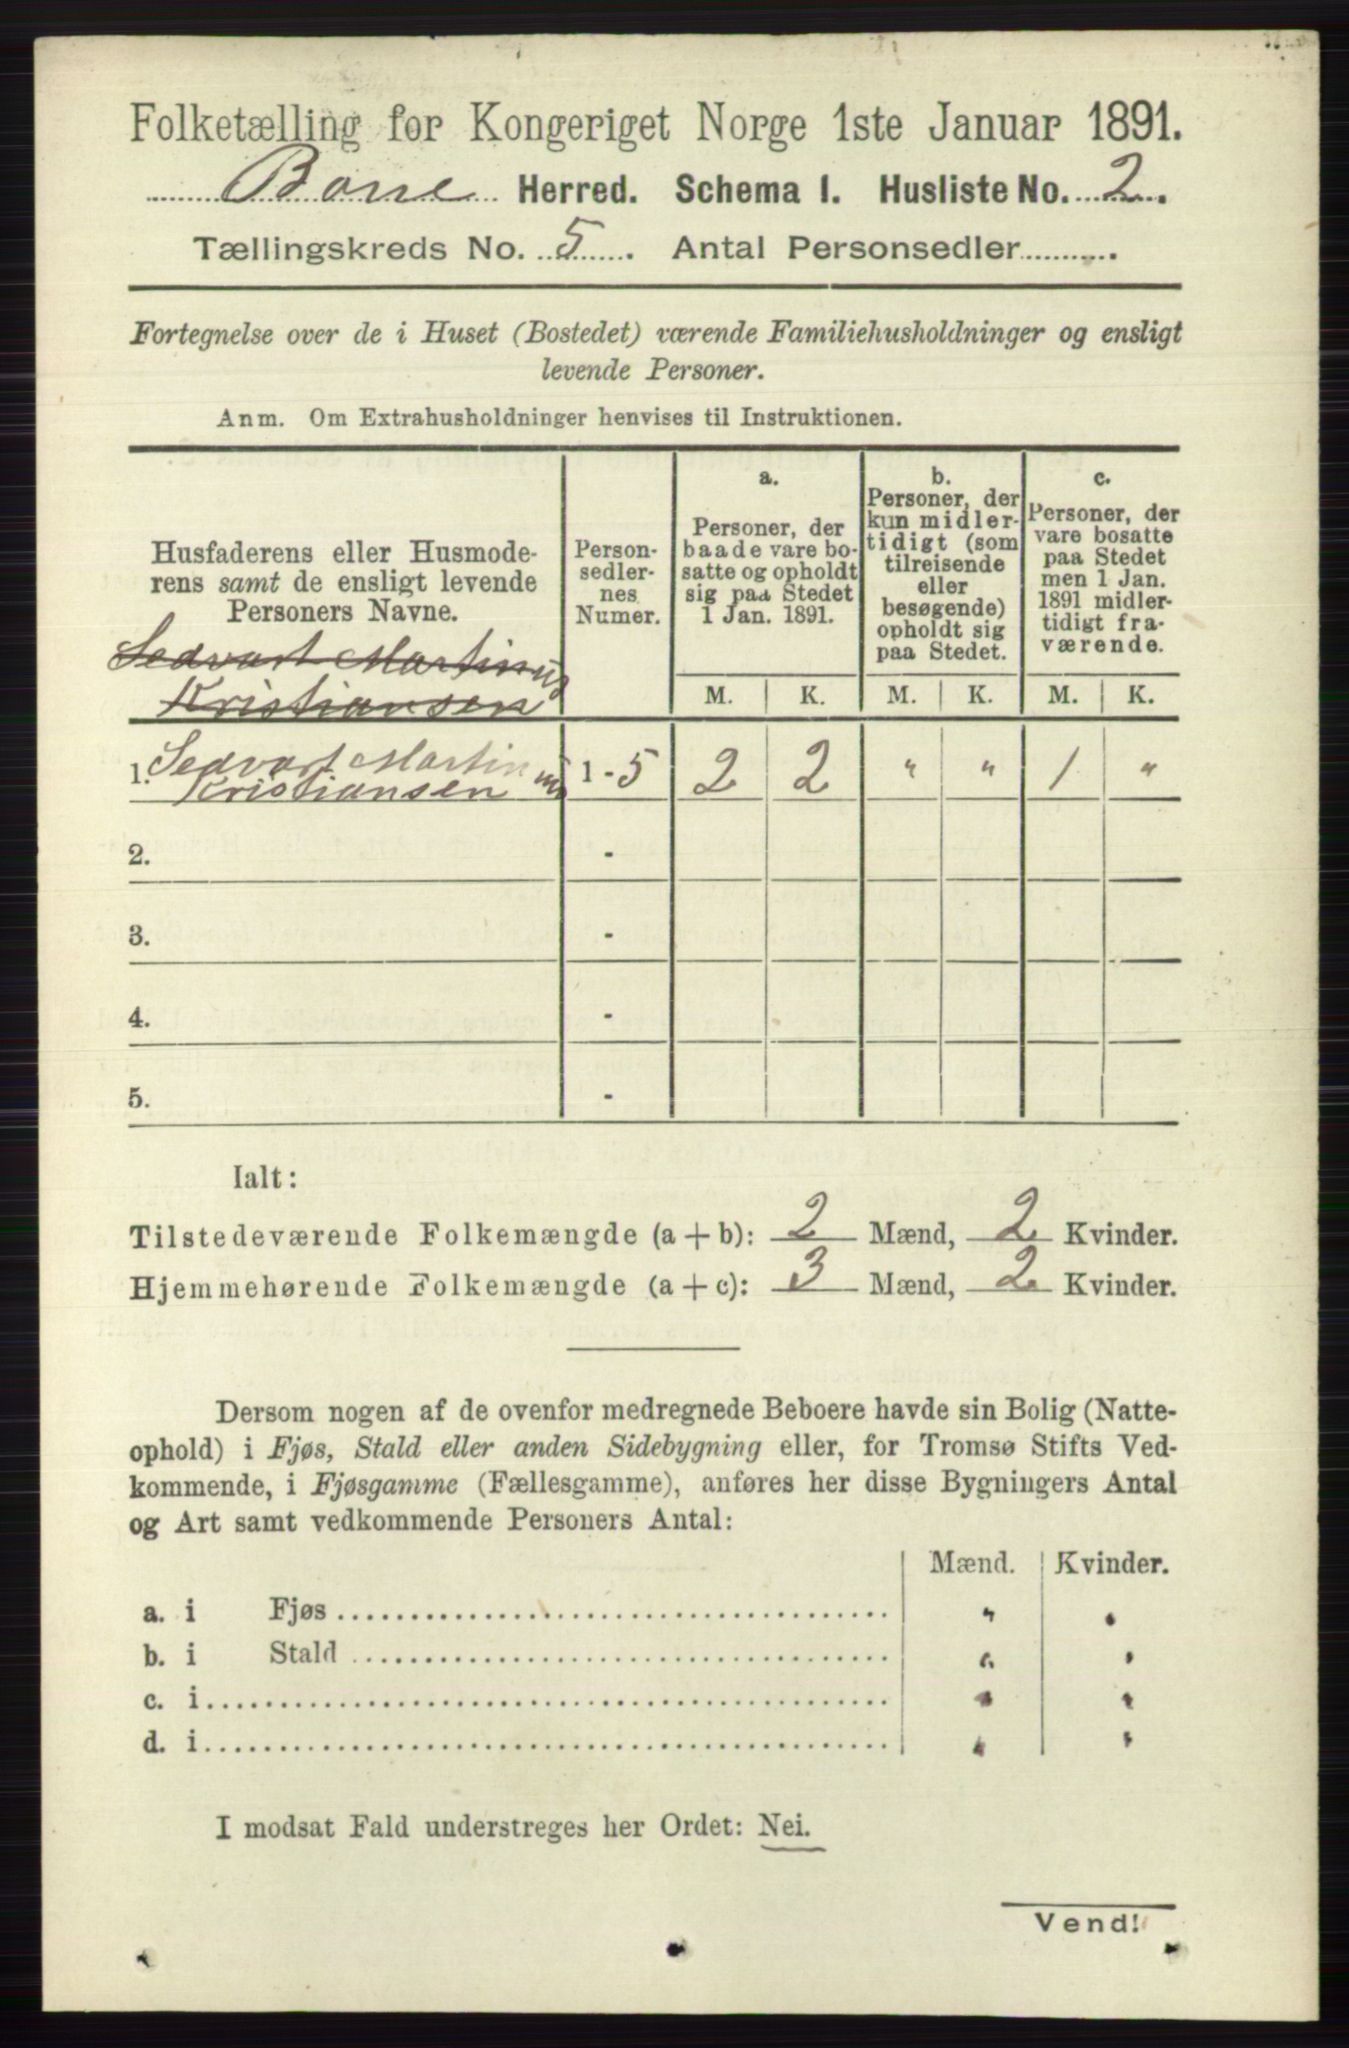 Folketælling for Kongeriget Norge 1ste Januar 1891.
Borre Herred. Schema I. Husliste No. 2.
Tællingskreds No. 5. Antal Personsedler...........
Fortegnelse over de i Huset (Bostedet) værende Familiehusholdninger og ensligt
levende Personer.
Anm. Om Extrahusholdninger henvises til Instruktionen.
Husfaderens eller Husmode-
rens samt de ensligt levende
Personers Navne.
Sedvart Martinius
Kristiansen
Person-
sedler-
nes
Numer.
a.
Personer, der
baade vare bo-
satte og opholdt
sig paa Stedet
1 Jan. 1891.
b.
Personer, der
kun midler-
tidigt (som
tilreisende
eller
besøgende)
opholdt sig
paa Stedet.
c.
Personer, der
vare bosatte
paa Stedet
men 1 Jan.
1891 midler-
tidigt fra-
værende.
M. K. M. K. M. K.
1. Sedvart Martinius
Kristiansen 1 - 5 2 2 " " 1 "
2. -
3. -
4. -
5. -
Ialt:
Tilstedeværende Folkemængde (a + b): 2 Mænd, 2 Kvinder.
Hjemmehørende Folkemængde (a + c): 3 Mænd, 2 Kvinder.
Dersom nogen af de ovenfor medregnede Beboere havde sin Bolig (Natte-
ophold) i Fjøs, Stald eller anden Sidebygning eller, for Tromsø Stifts Ved-
kommende, i Fjøsgamme (Fællesgamme), anføres her disse Bygningers Antal
og Art samt vedkommende Personers Antal:
Mænd. Kvinder.
a. i Fjøs " "
b. i Stald " "
c. i " "
d. i " "
I modsat Fald understreges her Ordet: Nei.
Vend!